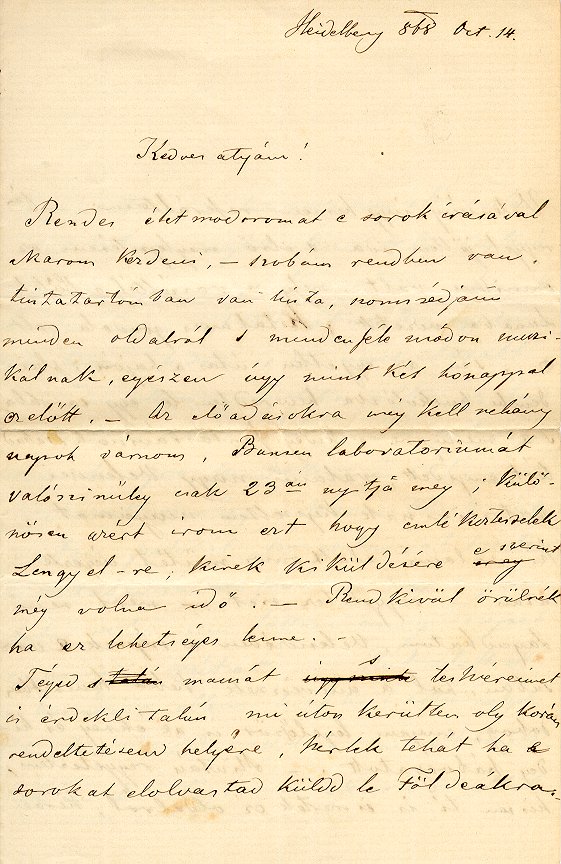 Heidelberg 868 Oct. 14.
Kedves atyám!
Rendes életmodoromat e sorok írásával
akarom kezdeni, – szobám rendben van,
tintatartómban van tinta, szomszédjaim
minden oldalról s mindenféle módon muzsi-
kálnak, egészen úgy mint két hónappal
ezelőtt. – Az előadásokra még kell néhány
napok várnom, Bunsen laboratoriumát
valószinüleg csak 23 án nyitja meg; külö-
nösen azért irom ezt hogy emlékeztesselek
Lengyel-re, kinek kiküldésére e szerint
még volna idő. – Rendkivül örülnék
ha ez lehetséges lenne. –
Téged s talán mamát úgy mint s testvéreimet
is érdekli talán mi úton kerültem oly korán
rendeltetésem helyére, kérlek tehát ha e
sorokat elolvastad küldd le Földeákra.